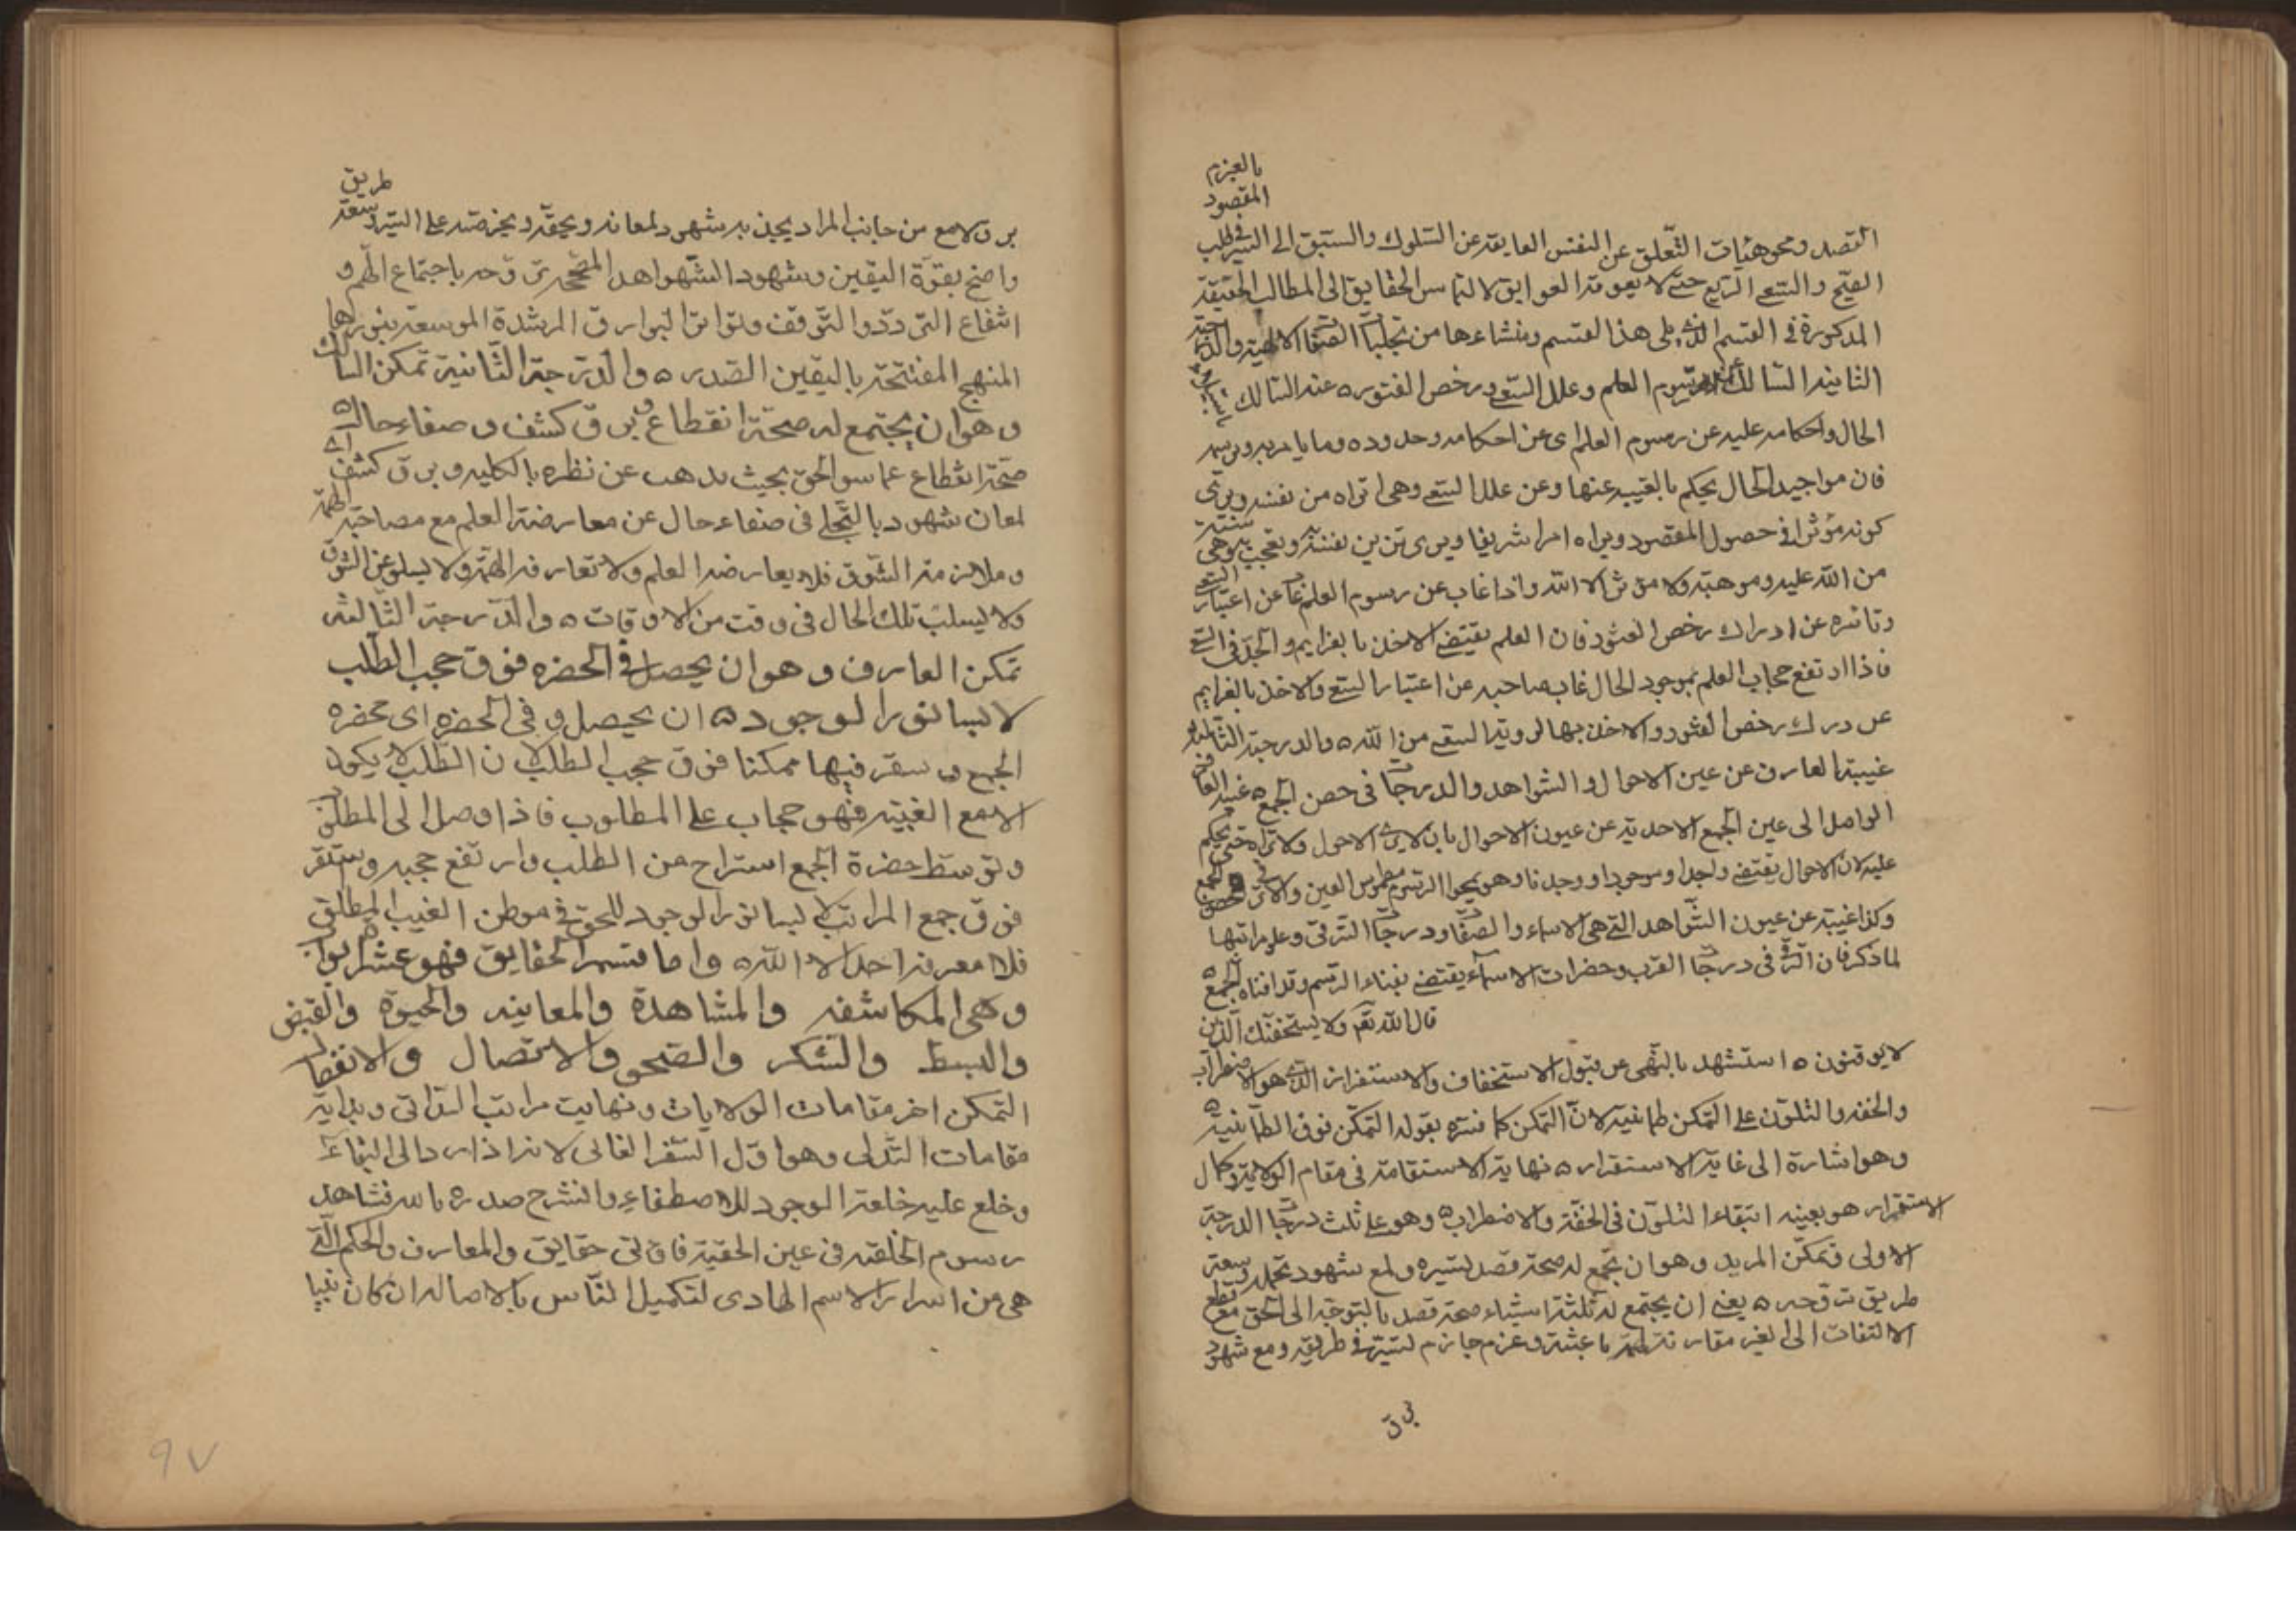 بالعزم
المقصود
القصد ومحو هيئات التعلق عن النفس العايقه عن السلوك والسبق الى السير فى طلب
الصحيح والسعى السريع حتى لا يعوقه العوايق لالتماس الحقايق الى المطالب الحقيقة
المذكورة فى القسم الذى يلى هذا القسم ومنشاءها من تجليات الصفات الالهية والدرجة
الثانيه السالك رسوم العلم وعلل السعى ورخص الفتور ه عند السالك
الحال واحكامه عليه عن رسوم العلم اى عن احكامه وحدوده وما يامر به ويرسمه
فان مواجيد الحال يحكم بالغيبه عنها وعن علل السعى وهى اتراه من نفسه ويرى
كونه مؤثرا فى حصول المقصود ويراه امرا شريفا ويرى تزين نفسه وتعجب به وهى
من الله عليه وموهبته ولا مؤثر الا الله واذا غاب عن رسوم العلم غاب عن اعتبار السعى
وتاثيره عن ادراك رخص الفتور فان العلم يقتضى الاخذ بالعزايم والجد فى السعى
فاذا ارتفع حجاب العلم بموجود الحال غاب صاحبه عن اعتبار السعى والاخذ بالعزايم
عن درك رخص الفتور والاخذ بها لرويته السعى من الله ه والدرجة الثالثة
غيبة العارف عن عين الاحوال والشواهد والدرجات فى حصن الجمع ه غيبه العارف
الواصل الى عين الجمع الاحديه عن عيون الاحوال بان لا يرى الاحول ولا تراه حتى يحكم
عليه لان الاحوال يقتضى واجدا وموجودا ووجدنا وهو بمحو الرسم مطموس العين والاثر فى حصن الجمع
وكذا غيبته عن عيون الشواهد التى هى الاسماء والصفات ودرجات الترقى وعلو مراتبها
لما ذكر فان الترقى فى درجات القرب وحضرات الاسماء يقتضى بقاء الرسم وقد افناه الجمع ه
قال الله تعم ولا يستخفنك الذين
لا يوقنون ه استشهد بالنهى عن قبول الاستخفاف والاستفزاز الذى هو الاضطراب
والخفه والتلون على التمكن طمانينه لان التمكن كما فسره بقوله التمكن فوق الطمانينه ه
وهو اشارة الى غاية الاستقرار ه نهاية الاستقامة فى مقام الولاية وكمال
الاستقرار هو بعينه انتفاء التلون فى الخفة والاضطراب ه وهو على ثلث درجات الدرجة
الاولى تمكن المريد وهو ان يجتمع له صحة قصد تسيره ولمع شهود تحمله وسعة
طريق تروحه ه يعنى ان يجتمع له ثلثة اشياء صحة قصد بالتوجه الى الحق مع قطع
الالتفات الى الغير مقارنة لهمة باعثة وعزم جازم لتسيره فى طريقه ومع شهود
برق
برق لامع من جانب المراد يجذ به شهود لمعانه ويحقه ويخرضه على السير وسعة طريق
واضح بقوة اليقين وشهود الشواهد المصححه ترى وحه باجتماع الهم و
انتفاع التردد والتوقف وتواتر البوارق المرشدة الموسعه بنورها
المنهج المفتتحة باليقين الصدر ه والدرجة الثانية تمكن السالك
وهو ان يجتمع له صحة انقطاع وبرق كشف وصفاء حال ه
صحة انقطاع عما سوا الحق بحيث يذهب عن نظره بالكليه وبرق كشف اى
لمعان شهود بالتجلى فى صفاء حال عن معارضة العلم مع مصاحبة الهمة
وملازمة الشوق فلا يعارضه العلم ولا تعارفه الهمة ولا يسلو عن الشوق
ولا يسلب تلك الحال فى وقت من الاوقات ه والدرجة الثالثه
تمكن العارف وهو ان يحصل فى الحضره فوق حجب الطلب
لابسا نور الوجود ه ان يحصل و فى الحضره اى حضره
الجمع و سقر فيها ممكنا فوق حجب الطلب لان الطلب لا يكون
الا مع الغيبه فهو حجاب على المطلوب فاذا وصل الى المطلوب
وتوسط حضرة الجمع استراح من الطلب وارتفع حجبه واستقر
فوق جمع المراتب لابسا نور الوجود للحق فى موطن الغيب المطلق
فلا معرفه احد الا الله ه واما قسم الحقايق فهو عشرة ابواب
وهى المكاشفه والمشاهدة والمعاينه والحيوة والقبض
والبسط والسكر والصحو والاتصال والانفصال
التمكن اخر مقامات الولايات ونهايت مراتب الذاتى وبداية
مقامات التدلى وهو اول السفر الغالى لانه اذا رد الى البقاء
وخلع عليه خلعة الوجود للاصطفاء وانشرح صدره باسر فشاهد
رسوم الخلقه فى عين الحقية فاق لتى حقايق والمعارف والحكم التى
هى من اسرار الاسم الهادى لتكميل الناس بالاصاله ان كان نبيا
٩٧